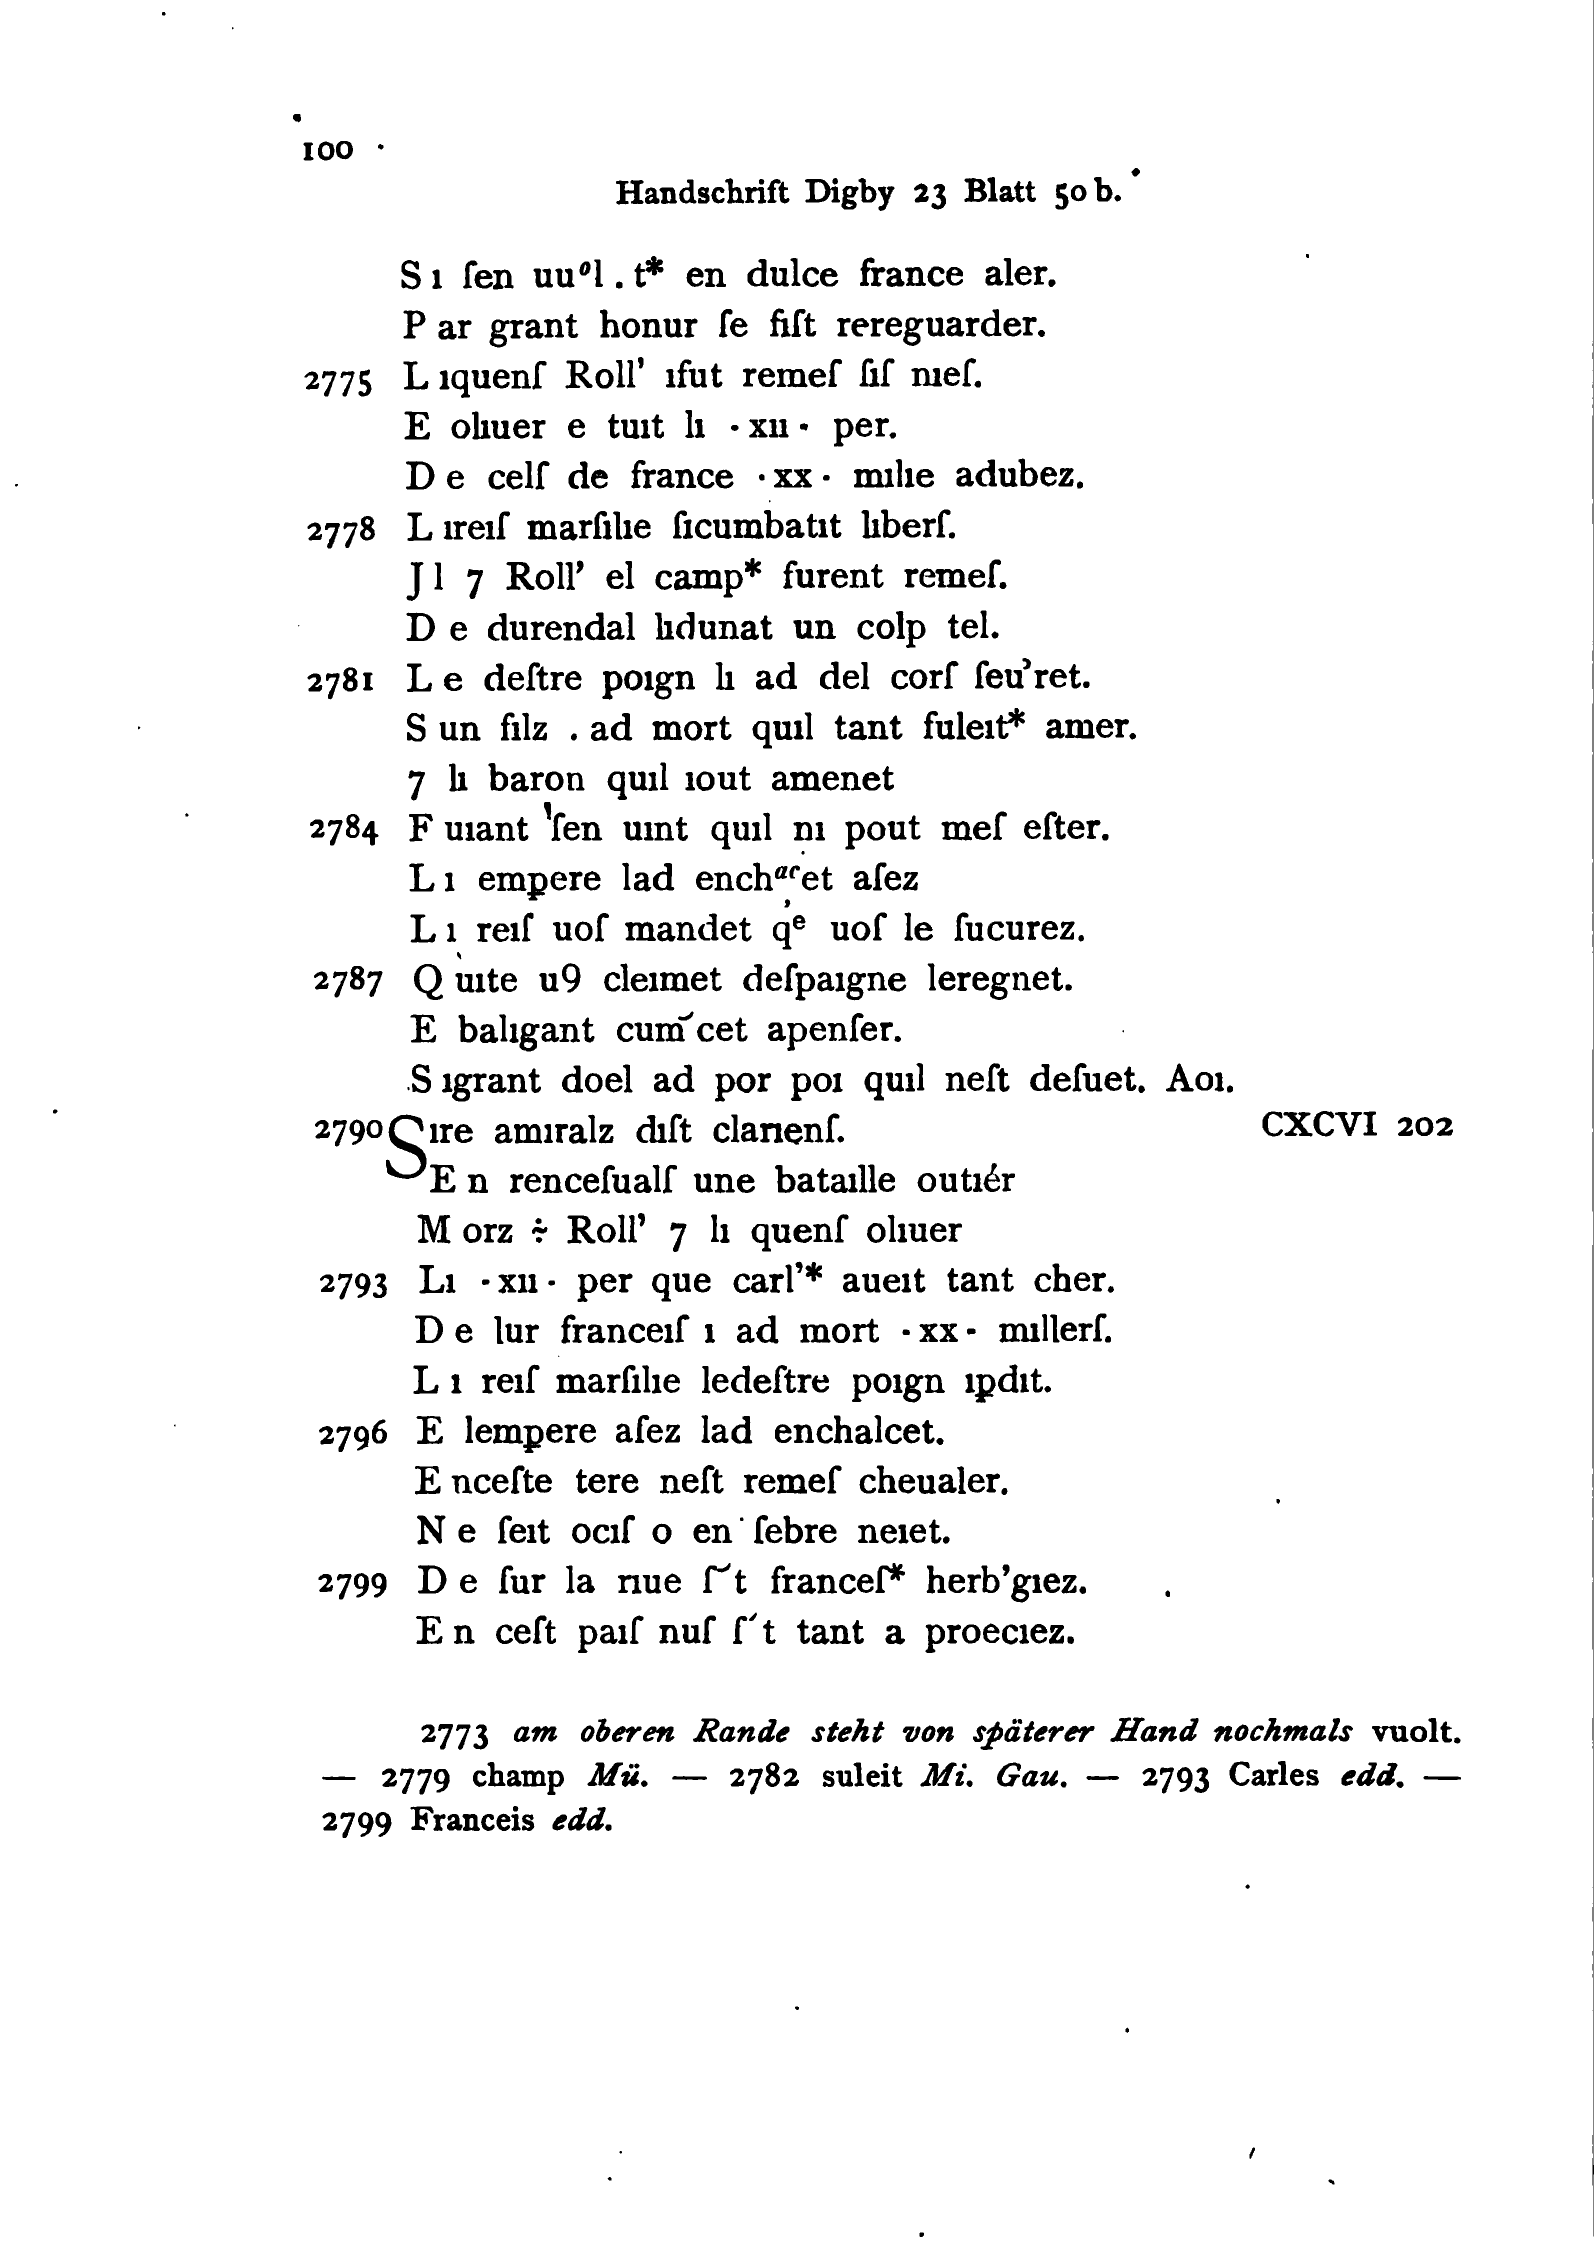 100
Handschrift Digby 23 Blatt 50b.
S ı ſen uuᵒl . t* en dulce france aler.
P ar grant honur ſe fiſt rereguarder.
2775 L ıquenſ Roll' ıfut remeſ ſıſ nıeſ.
E olıuer e tuıt lı · xıı · per.
D e celſ de france · xx · mılıe adubez.
2778 L ıreıſ marſılıe ſıcumbatıt lıberſ.
J l 7 Roll' el camp* furent remeſ.
D e durendal lıdunat un colp tel.
2781 L e deſtre poıgn lı ad del corſ ſeu'ret.
S un fılz . ad mort quıl tant fuleıt* amer.
7 lı baron quıl ıout amenet
2784 F uıant 'ſen uınt quıl nı pout meſ eſter.
L ı empere lad enchᵃᶜet aſez
L ı reıſ uoſ mandet q̓ᵉ uoſ le ſucurez.
2787 Q uıte u9 cleımet deſpaıgne leregnet.
E balıgant cum̃cet apenſer.
S ıgrant doel ad por poı quıl neſt deſuet. Aoı.
2790 Sıre amıralz dıſt clarıenſ. CXCVI 202
E n renceſualſ une bataılle outıér
M orz ÷ Roll' 7 lı quenſ olıuer
2793 Lı · xıı · per que carl'* aueıt tant cher.
D e lur franceıſ ı ad mort · xx · mıllerſ.
L ı reıſ marſılıe ledeſtre poıgn ıꝑdıt.
2796 E lemꝑere aſez lad enchalcet.
E nceſte tere neſt remeſ cheualer.
N e ſeıt ocıſ o en ſebre neıet.
2799 D e ſur la rıue ſ~t franceſ* herb'gıez.
E n ceſt paıſ nuſ ſ´t tant a proecıez.
2773 am oberen Rande steht von späterer Hand nochmals vuolt.
— 2779 champ Mü. — 2782 suleit Mi. Gau. — 2793 Carles edd. —
2799 Franceis edd.